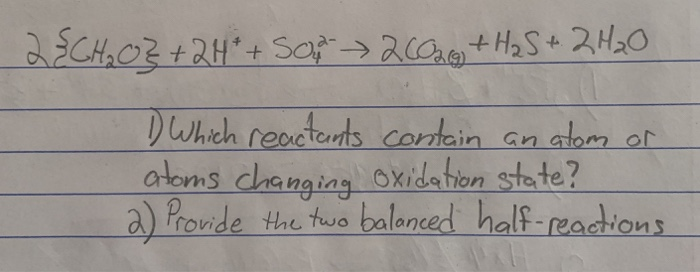 2{CH₂O} + 2H⁺ + SO₄²⁻ → 2CO₂(g) + H₂S + 2H₂O
1) Which reactants contain an atom or
atoms changing oxidation state?
2) Provide the two balanced half-reactions